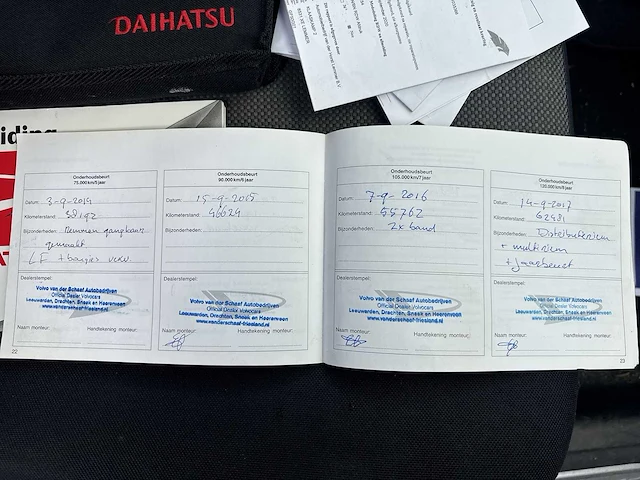 DAIHATSU
Onderhoudsbeurt
75.000 km/5 jaar
Datum: 3-9-2014
Kilometerstand: 38192
Bijzonderheden: Remmen gangbaar
gemaakt
Dealerstempel:
Volvo van der Schaaf Autobedrijven
Official Dealer Volvocars
Leeuwarden, Drachten, Sneek en Heerenveen
www.vanderschaaf-friesland.nl
Naam monteur:
Handtekening monteur:
22
Onderhoudsbeurt
90.000 km/6 jaar
Datum: 15-9-2015
Kilometerstand: 46624
Bijzonderheden:
Dealerstempel:
Volvo van der Schaaf Autobedrijven
Official Dealer Volvocars
Leeuwarden, Drachten, Sneek en Heerenveen
www.vanderschaaf-friesland.nl
Naam monteur:
Handtekening monteur:
Onderhoudsbeurt
105.000 km/7 jaar
Datum: 7-9-2016
Kilometerstand: 55762
Bijzonderheden: 2x band
Dealerstempel:
Volvo van der Schaaf Autobedrijven
Official Dealer Volvocars
Leeuwarden, Drachten, Sneek en Heerenveen
www.vanderschaaf-friesland.nl
Naam monteur:
Handtekening monteur:
Onderhoudsbeurt
120.000 km/8 jaar
Datum: 14-9-2017
Kilometerstand: 62481
Bijzonderheden: Distributieriem
+ multiriem
+ jaarbeurt
Dealerstempel:
Volvo van der Schaaf Autobedrijven
Official Dealer Volvocars
Leeuwarden, Drachten, Sneek en Heerenveen
www.vanderschaaf-friesland.nl
Naam monteur:
Handtekening monteur:
23